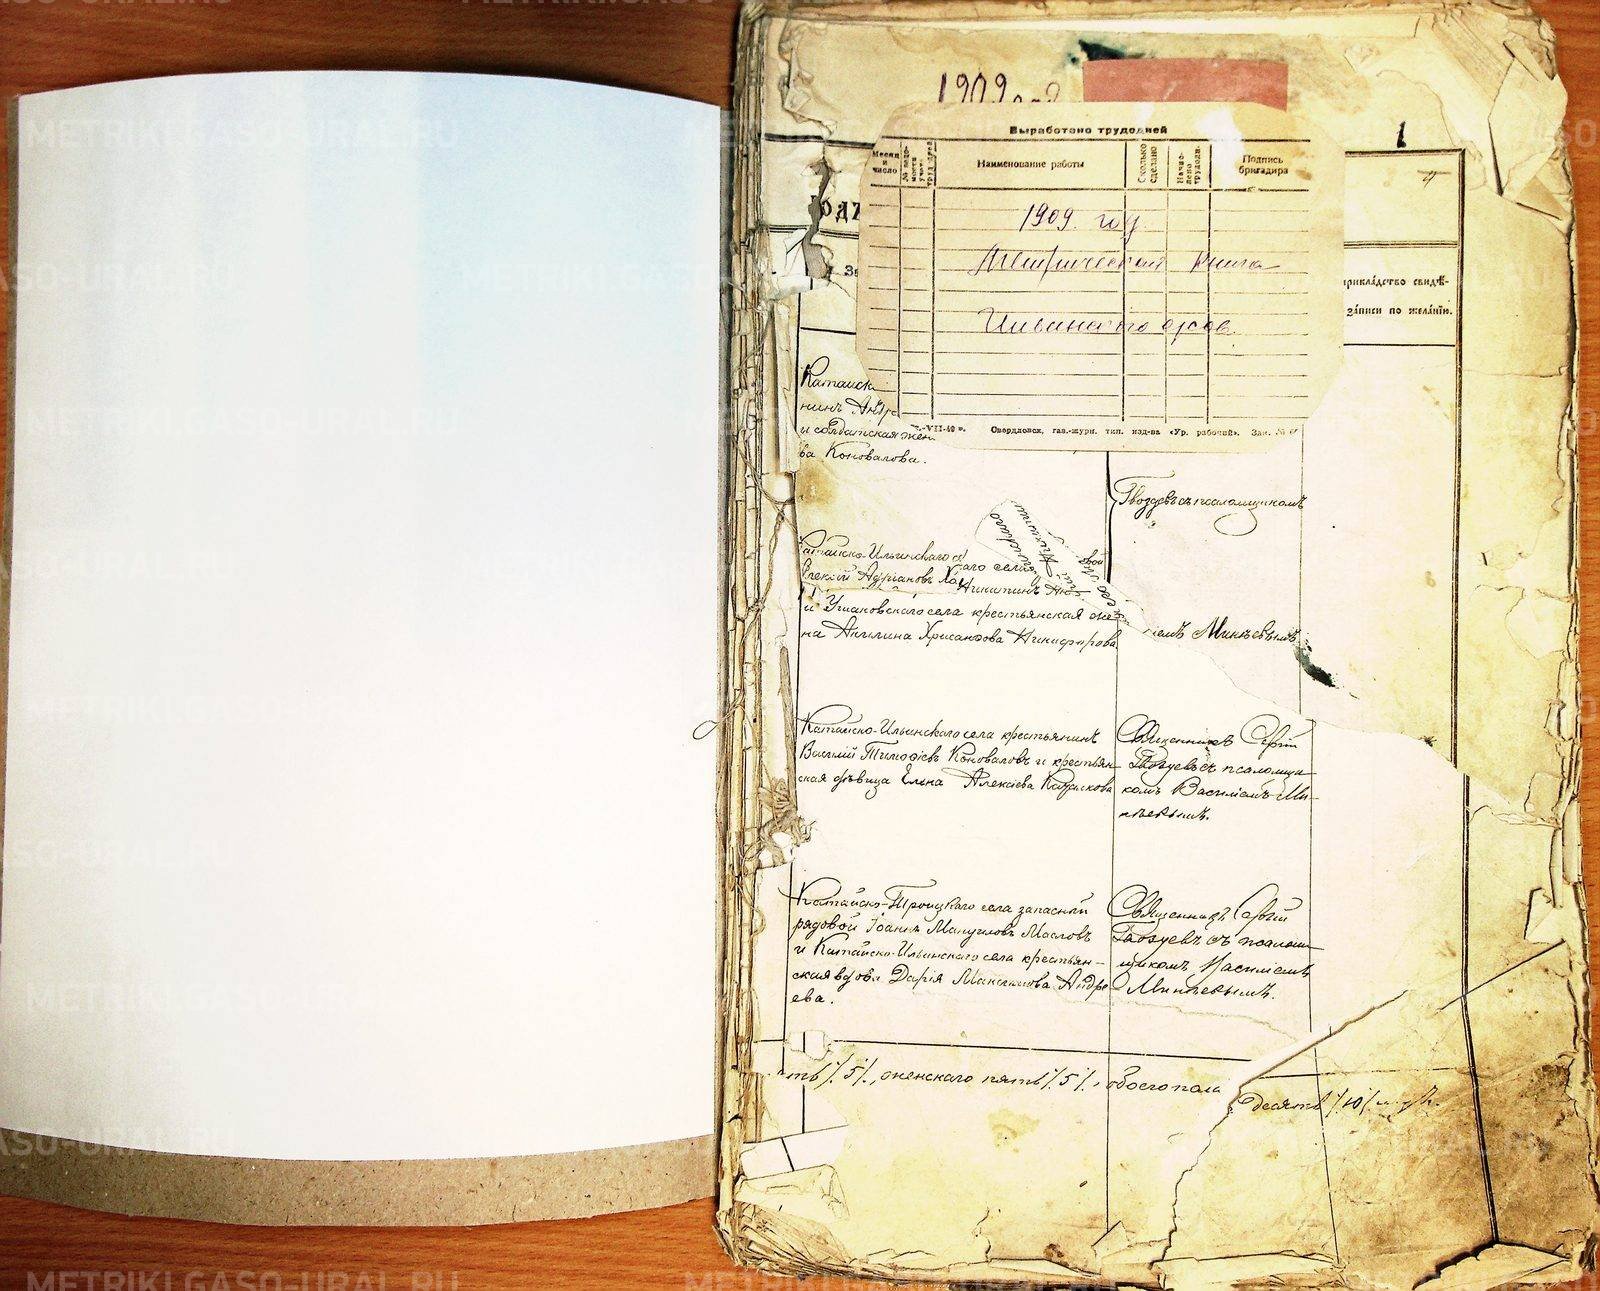 1909
1
Выработано трудодней
Месяц и число
Наименование работы
Сколько сделано
Начислено трудодн.
Подпись бригадира
1909. год
Метрическая книга
Свердловск, газ.-журн. тип. изд-ва «Ур. рабочий». Зак. №
рикла́дство свидѣ-
за́писи по жела́нїю.
Катайск
нинъ Андр
и солдатская жен
ва Коновалова.
Гвоздевъ съ псаломщикомъ
Катайско-Ильинскаго
Алексѣй Адріановъ
и Ушаковскаго села крестьянская же
на Ангелина Хрисанфова Никифорова
Минѣевымъ
Катайско-Ильинскаго села крестьянинъ
Василій Тимофіевъ Коноваловъ и крестьян
ская дѣвица Елена Алексіева Кадаткова
Священникъ Сергій
Гвоздевъ съ псаломщи-
комъ Василіемъ Ми-
нѣевымъ.
Катайско-Троицкаго села запасный
рядовой Іоаннъ Мануиловъ Масловъ
и Катайско-Ильинскаго села крестьян-
ская вдова Дарія Максимова Андре
ева.
Священникъ Сергій
Гвоздевъ съ псалом-
щикомъ Василіемъ
Минѣевымъ.
ть /5/, женскаго пять /5/, обоего пола
десять /10/
METRIKI.GASO-URAL.RU